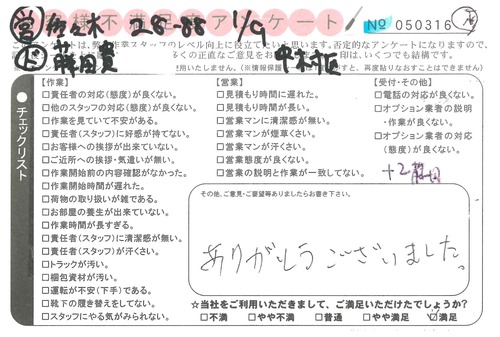 営 佐々木 28-88 1/9
お客様不満足度アンケート
No 050316
藤田貴 中村区
このアンケートは、弊社作業スタッフのレベル向上に役立てていきたいと思います。否定的なアンケートになりますので、
多くの正直なご意見をお
印は、いくつでも結構です。
チェックリスト
【作業】
□責任者の対応(態度)が良くない。
□他のスタッフの対応(態度)が良くない。
□作業を見ていて不安がある。
□責任者(スタッフ)に好感が持てない。
□お客様への挨拶が出来ていない。
□ご近所への挨拶・気遣いが無い。
□作業開始前の内容確認がなかった。
□作業開始時間が遅れた。
□荷物の取り扱いが雑である。
□お部屋の養生が出来ていない。
□作業時間が長すぎる。
□責任者(スタッフ)に清潔感が無い。
□責任者(スタッフ)が汗くさい。
□トラックが汚い。
□梱包資材が汚い。
□運転が不安(下手)である。
□靴下の履き替えをしてない。
□スタッフにやる気がみられない。
【営業】
□見積もり時間に遅れた。
□見積もり時間が長い。
□営業マンに清潔感が無い。
□営業マンが煙草くさい。
□営業マンが汗くさい。
□営業態度が良くない。
□営業の説明と作業が一致してない。
【受付・その他】
□電話の対応が良くない。
□オプション業者の説明
・作業が良くない。
□オプション業者の対応
(態度)が良くない。
その他、ご意見・ご要望等ありましたらお書き下さい。
ありがとうございました。
☆当社をご利用いただきまして、ご満足いただけたでしょうか?
□不満 □やや不満 □普通 □やや満足 ☑満足